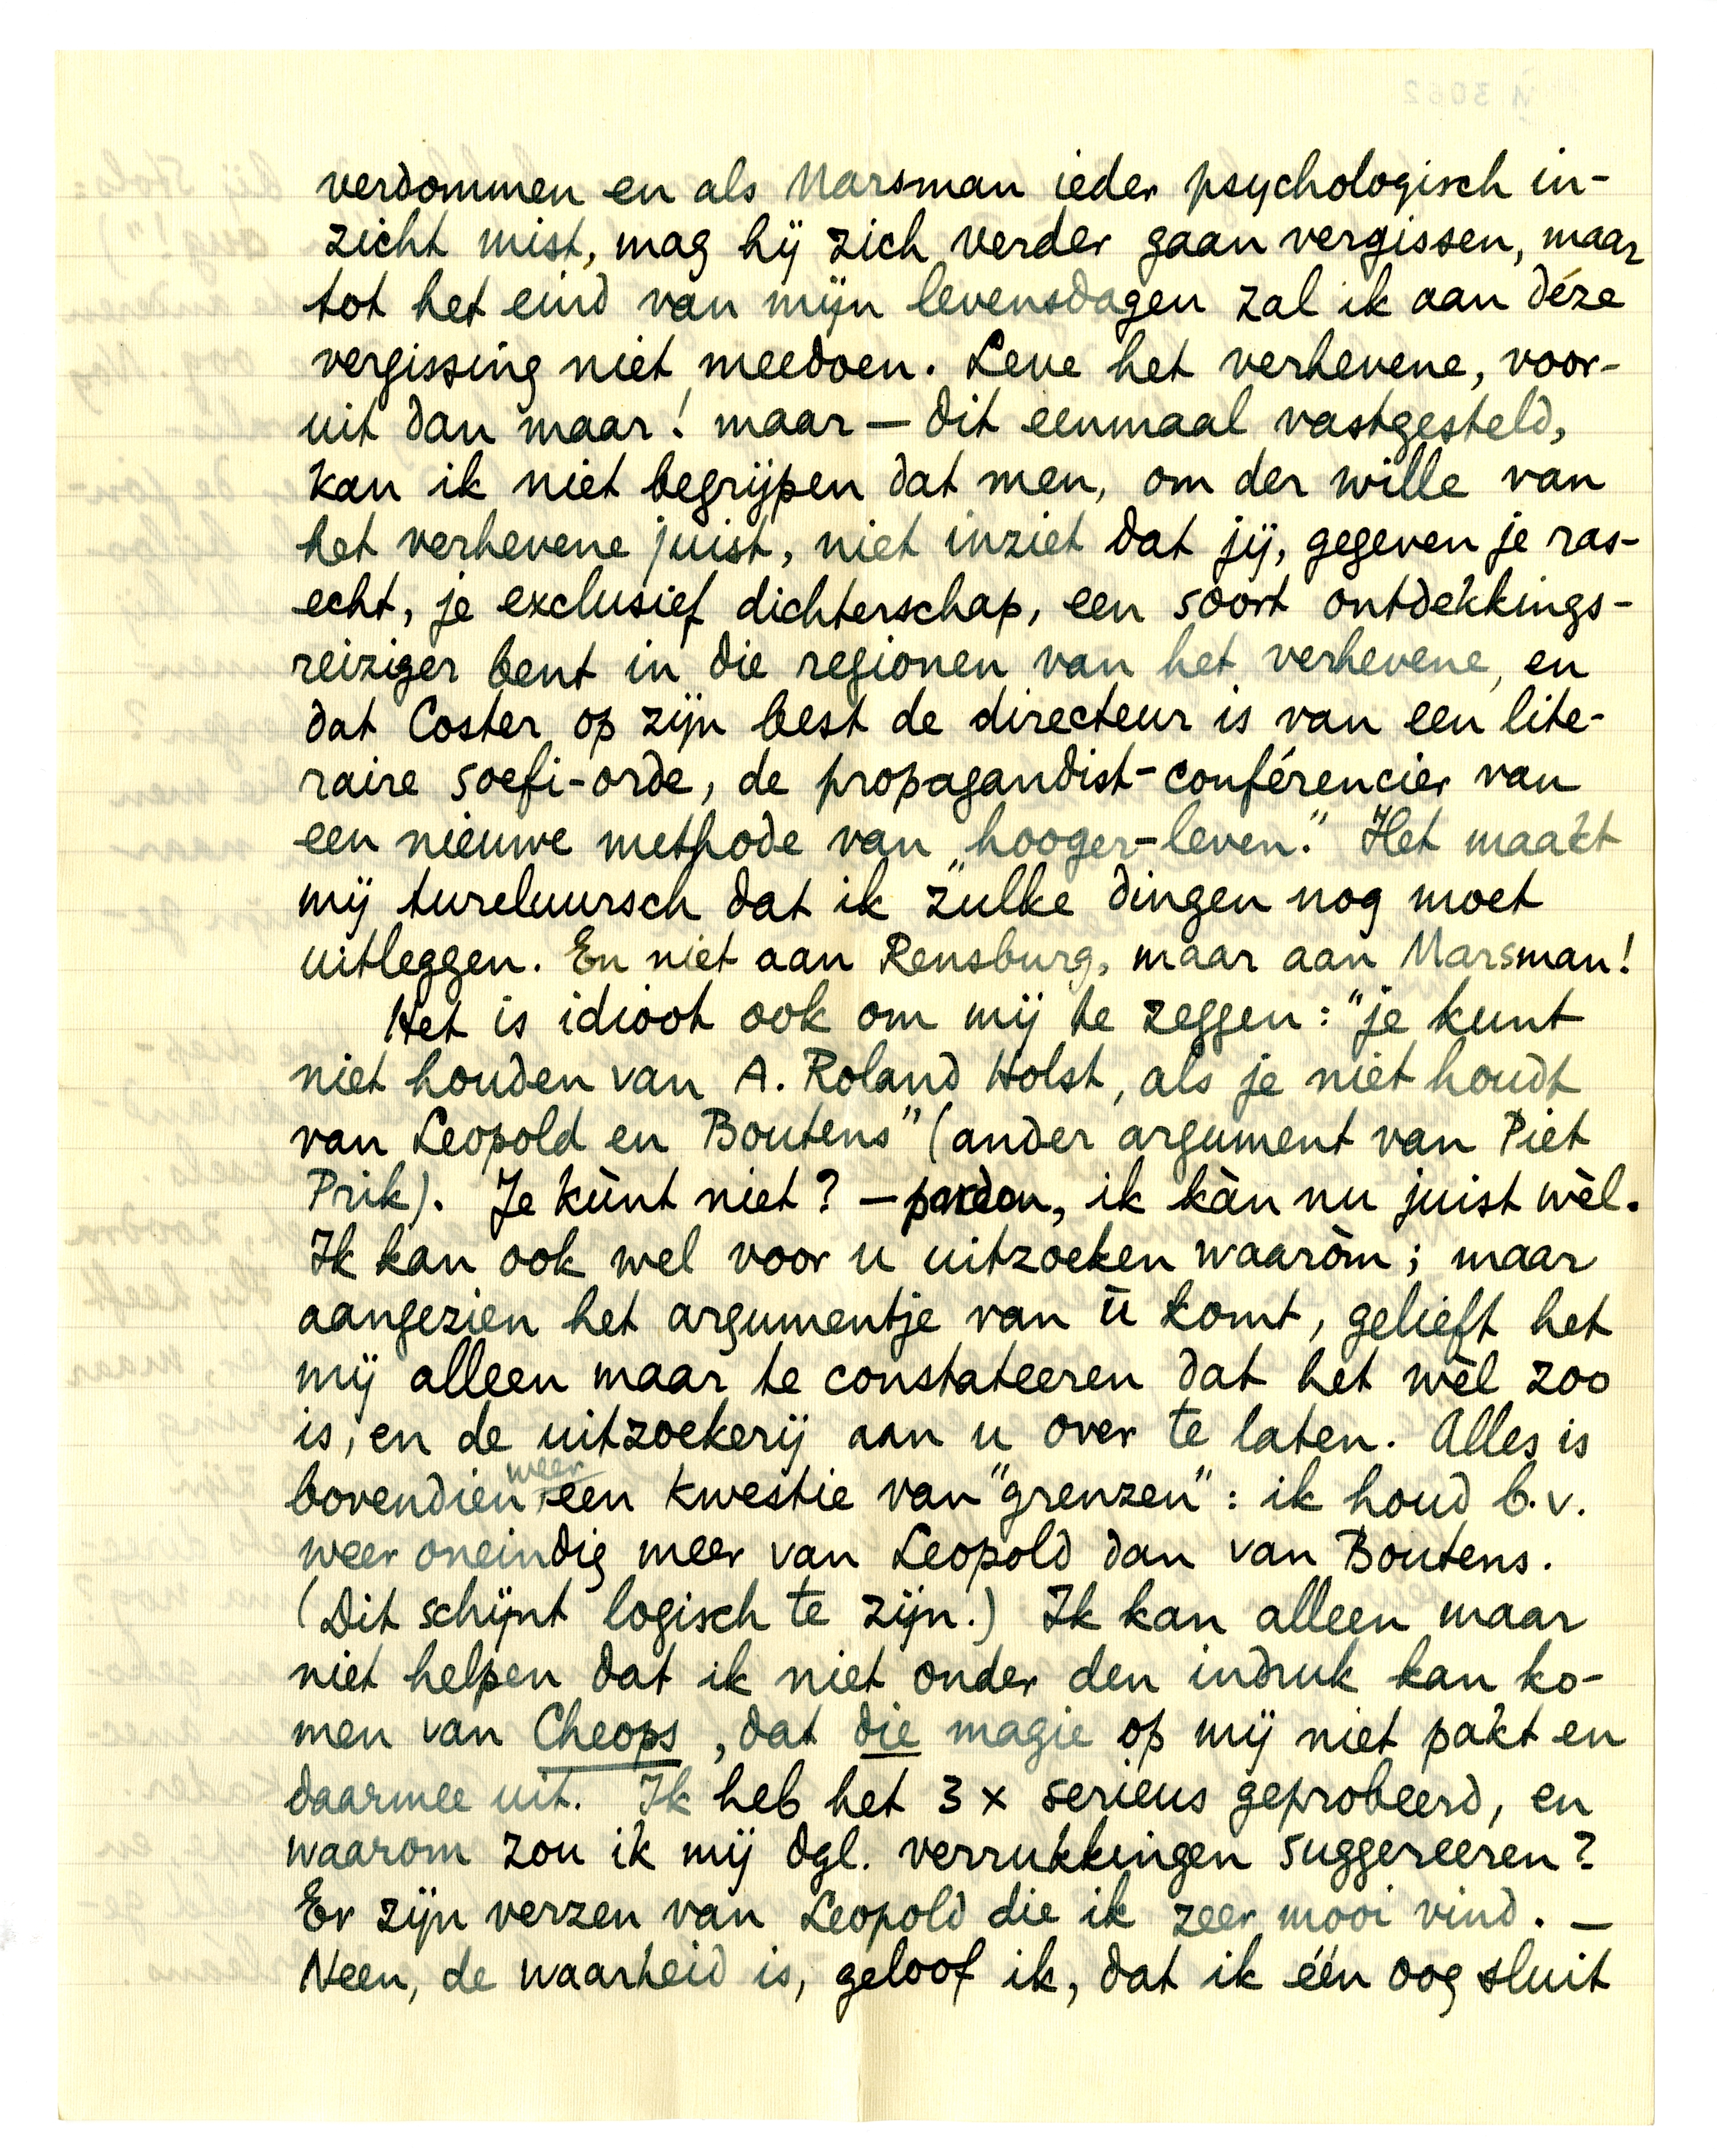 verdommen en als Marsman ieder psychologisch in-
zicht mist, mag hij zich verder gaan vergissen, maar
tot het eind van mijn levensdagen zal ik aan déze
vergissing niet meedoen. Leve het verhevene, voor-
uit dan maar! maar — dit eenmaal vastgesteld,
kan ik niet begrijpen dat men, om der wille van
het verhevene juist, niet inziet dat jij, gegeven je ras-
echt, je exclusief dichterschap, een soort ontdekkings-
reiziger bent in die regionen van het verhevene, en
dat Coster op zijn best de directeur is van een lite-
raire soefi-orde, de propagandist-conférencier van
een nieuwe methode van „hooger-leven." Het maakt
mij tureluursch dat ik zulke dingen nog moet
uitleggen. En niet aan Rensburg, maar aan Marsman!
Het is idioot ook om mij te zeggen: "je kunt
niet houden van A. Roland Holst, als je niet houdt
van Leopold en Boutens" (ander argument van Piet
Prik). Je kùnt niet? — pardon, ik kàn nu juist wèl.
Ik kan ook wel voor u uitzoeken waaròm; maar
aangezien het argumentje van ū komt, gelieft het
mij alleen maar te constateeren dat het wèl zoo
is, en de uitzoekerij aan u over te laten. Alles is
bovendien weer een kwestie van "grenzen": ik houd b.v.
weer oneindig meer van Leopold dan van Boutens.
(Dit schijnt logisch te zijn.) Ik kan alleen maar
niet helpen dat ik niet onder den indruk kan ko-
men van Cheops, dat die magie op mij niet pakt en
daarmee uit. Ik heb het 3 x serieus geprobeerd, en
waarom zou ik mij dgl. verrukkingen suggereeren?
Er zijn verzen van Leopold die ik zeer mooi vind. —
Neen, de waarheid is, geloof ik, dat ik één oog sluit